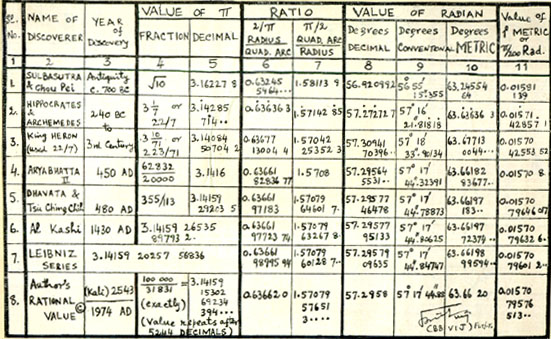 Sl. No. | NAME OF DISCOVERER | YEAR of Discovery | VALUE OF π | RATIO | VALUE OF RADIAN | Value of ρ METRIC or π/200 Rad.
FRACTION | DECIMAL | 2/π RADIUS QUAD. ARC | π/2 QUAD. ARC RADIUS | Degrees DECIMAL | Degrees CONVENTIONAL | Degrees METRIC
1 | 2 | 3 | 4 | 5 | 6 | 7 | 8 | 9 | 10 | 11
1. | SULBASUTRA & Chou Pei | Antiquity c. 700 BC | √10 | 3.16227 8 | 0.63245 5964... | 1.58113 9 | 56.920992 | 56° 55' 15".355 | 63.24555 64 | 0.01581 139
2. | HIPPOCRATES & ARCHEMEDES | 240 BC to | 3 1/7 or 22/7 | 3.14285 714.. | 0.636363 | 1.57142 85 | 57.27272 7 | 57° 16' 21".81818 | 63.63636 3 | 0.01571 42857 1
3. | King HERON (used 22/7) | 3rd Century | 3 10/71 or 223/71 | 3.14084 50704 2 | 0.63677 13004 4 | 1.57042 25352 3 | 57.30941 70396.. | 57° 18' 33".90134 | 63.67713 0044... | 0.01570 42553 52
4. | ARYABHATTA II | 450 AD | 62832 20000 | 3.1416 | 0.63661 82836 77 | 1.5708 | 57.29564 5531.. | 57° 17' 44".32391 | 63.66182 83677.. | 0.01570 8
5. | DHAVATA & Tsu Ching Chih | 480 AD | 355/113 | 3.14159 29203 5 | 0.63661 97183 | 1.57079 64601 7 | 57.29577 46478 | 57° 17' 44".78873 | 63.66197 183.. | 0.01570 79646 07
6. | Al Kashi | 1430 AD | 3.14159 26535 89793 2.. | 0.63661 97723 7 | 1.57079 63267 8 | 57.29577 95133 | 57° 17' 44".80625 | 63.66197 72379.. | 0.01570 79632 6..
7. | LEIBNIZ SERIES | 3.14159 20257 56836 | 0.63661 98995 | 1.57079 60128 7.. | 57.29579 09635 | 57° 17' 44".84747 | 63.66198 99594.. | 0.01570 79601 2..
8. | Author's RATIONAL VALUE © | (Kali) 2543 1974 AD | 100 000 31831 (exactly) | 3.14159 15302 69234 394... | 0.63662 0 | 1.57079 57651 3.... | 57.2958 | 57° 17' 44".88 | 63.66 20 | 0.01570 79576 513..
(Value repeats after 5244 DECIMALS)
(BB VIJ)